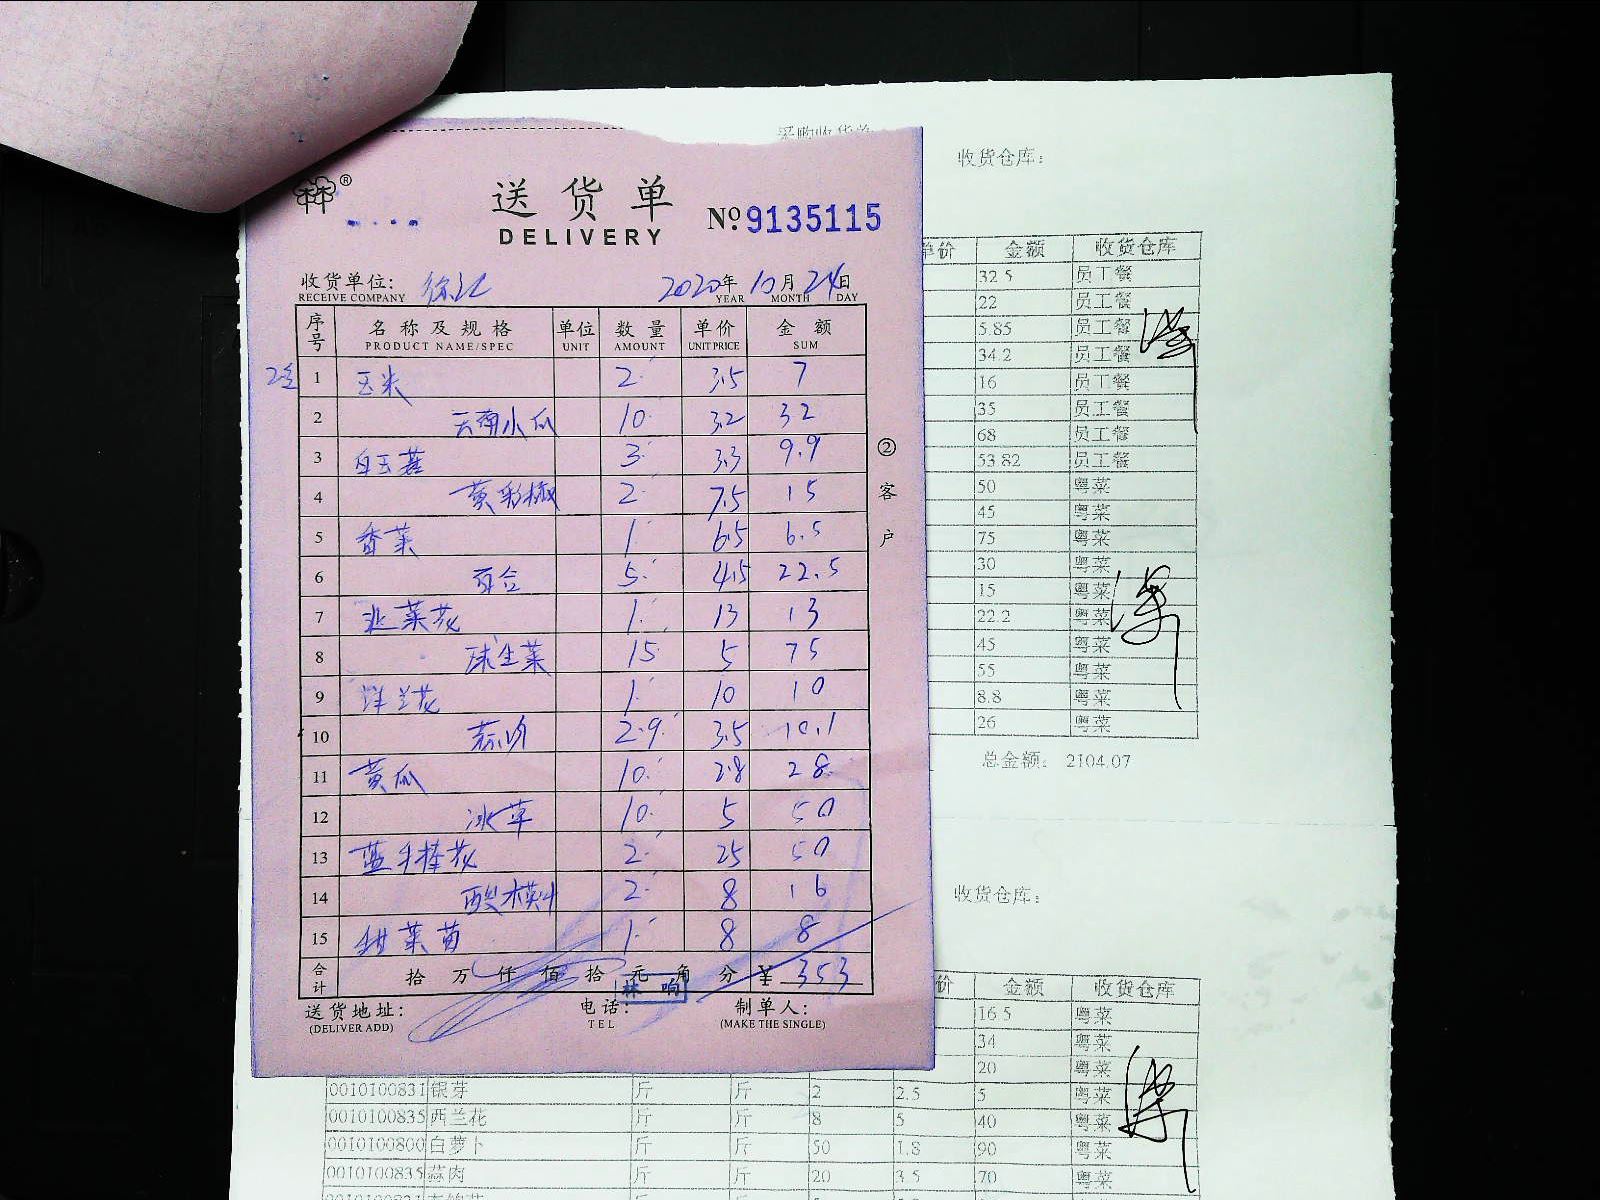 采购收货单
收货仓库：
送货单
DELIVERY
№ 9135115
收货单位：
RECEIVE COMPANY
2020年 10月 24日
YEAR MONTH DAY
序号 名称及规格 单位 数量 单价 金额
PRODUCT NAME/SPEC UNIT AMOUNT UNIT PRICE SUM
1 玉米 2 3.5 7
2 云南小瓜 10 3.2 32
3 白玉菇 3 3.3 9.9
4 黄彩椒 2 7.5 15
5 香菜 1 6.5 6.5
6 百合 5 4.5 22.5
7 韭菜花 1 13 13
8 球生菜 15 5 75
9 洋兰花 1 10 10
10 2.9 3.5 10.1
11 黄瓜 10 2.8 28
12 冰草 10 5 50
13 25 50
14 酸模叶 2 8 16
15 甜菜苗 1 8 8
合计 拾 万 仟 佰 拾 元 角 分 ¥ 353
林 响
送货地址： 电话： 制单人：
(DELIVER ADD) TEL (MAKE THE SINGLE)
②客户
单价 金额 收货仓库
32.5 员工餐
22 员工餐
5.85 员工餐
34.2 员工餐
16 员工餐
35 员工餐
68 员工餐
53.82 员工餐
50 粤菜
45 粤菜
75 粤菜
30 粤菜
15 粤菜
22.2 粤菜
45 粤菜
55 粤菜
8.8 粤菜
26 粤菜
总金额： 2104.07
收货仓库：
价 金额 收货仓库
16.5 粤菜
34 粤菜
20 粤菜
0010100831 银芽 斤 斤 2 2.5 5 粤菜
0010100835 西兰花 斤 斤 8 5 40 粤菜
0010100800 白萝卜 斤 斤 50 1.8 90 粤菜
0010100835 蒜肉 斤 斤 20 3.5 70 粤菜